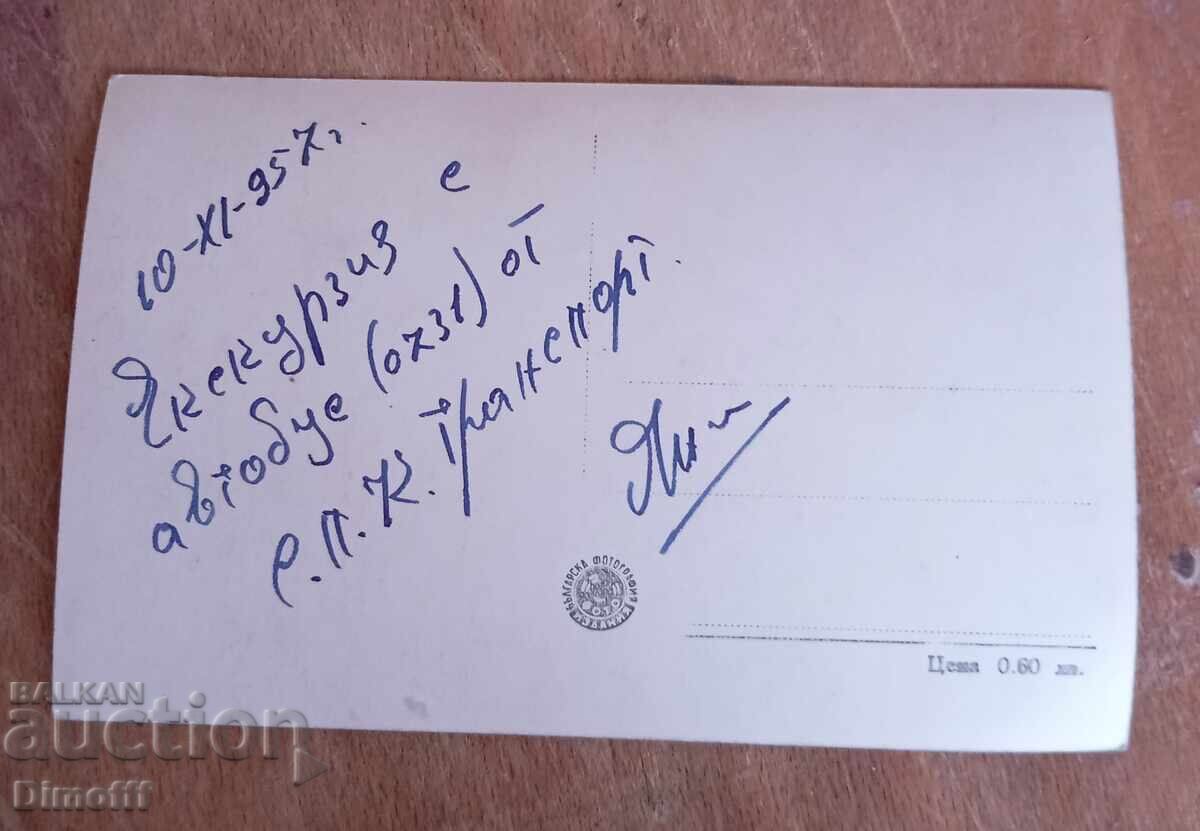 10-XI-957г.
Екскурзия с
автобус (0731) от
с.п.к. Транспорт.
БЪЛГАРСКА ФОТОГРАФИЯ
ИЗДАНИЕ
Цена 0.60 лв.
BALKAN
auction
Dimofff